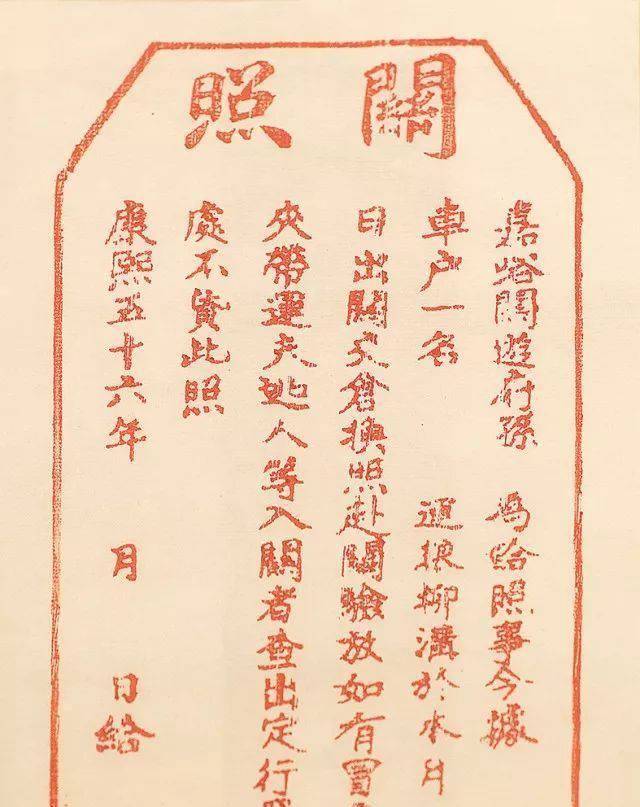 關照
嘉峪關遊府孫 為給照事今據
車戶一名 運糧柳溝於本月
日出關交倉換照赴關驗放如有冒
夾帶運夫逃人等入關者查出定行
處不貸此照
康熙五十六年 月 日給